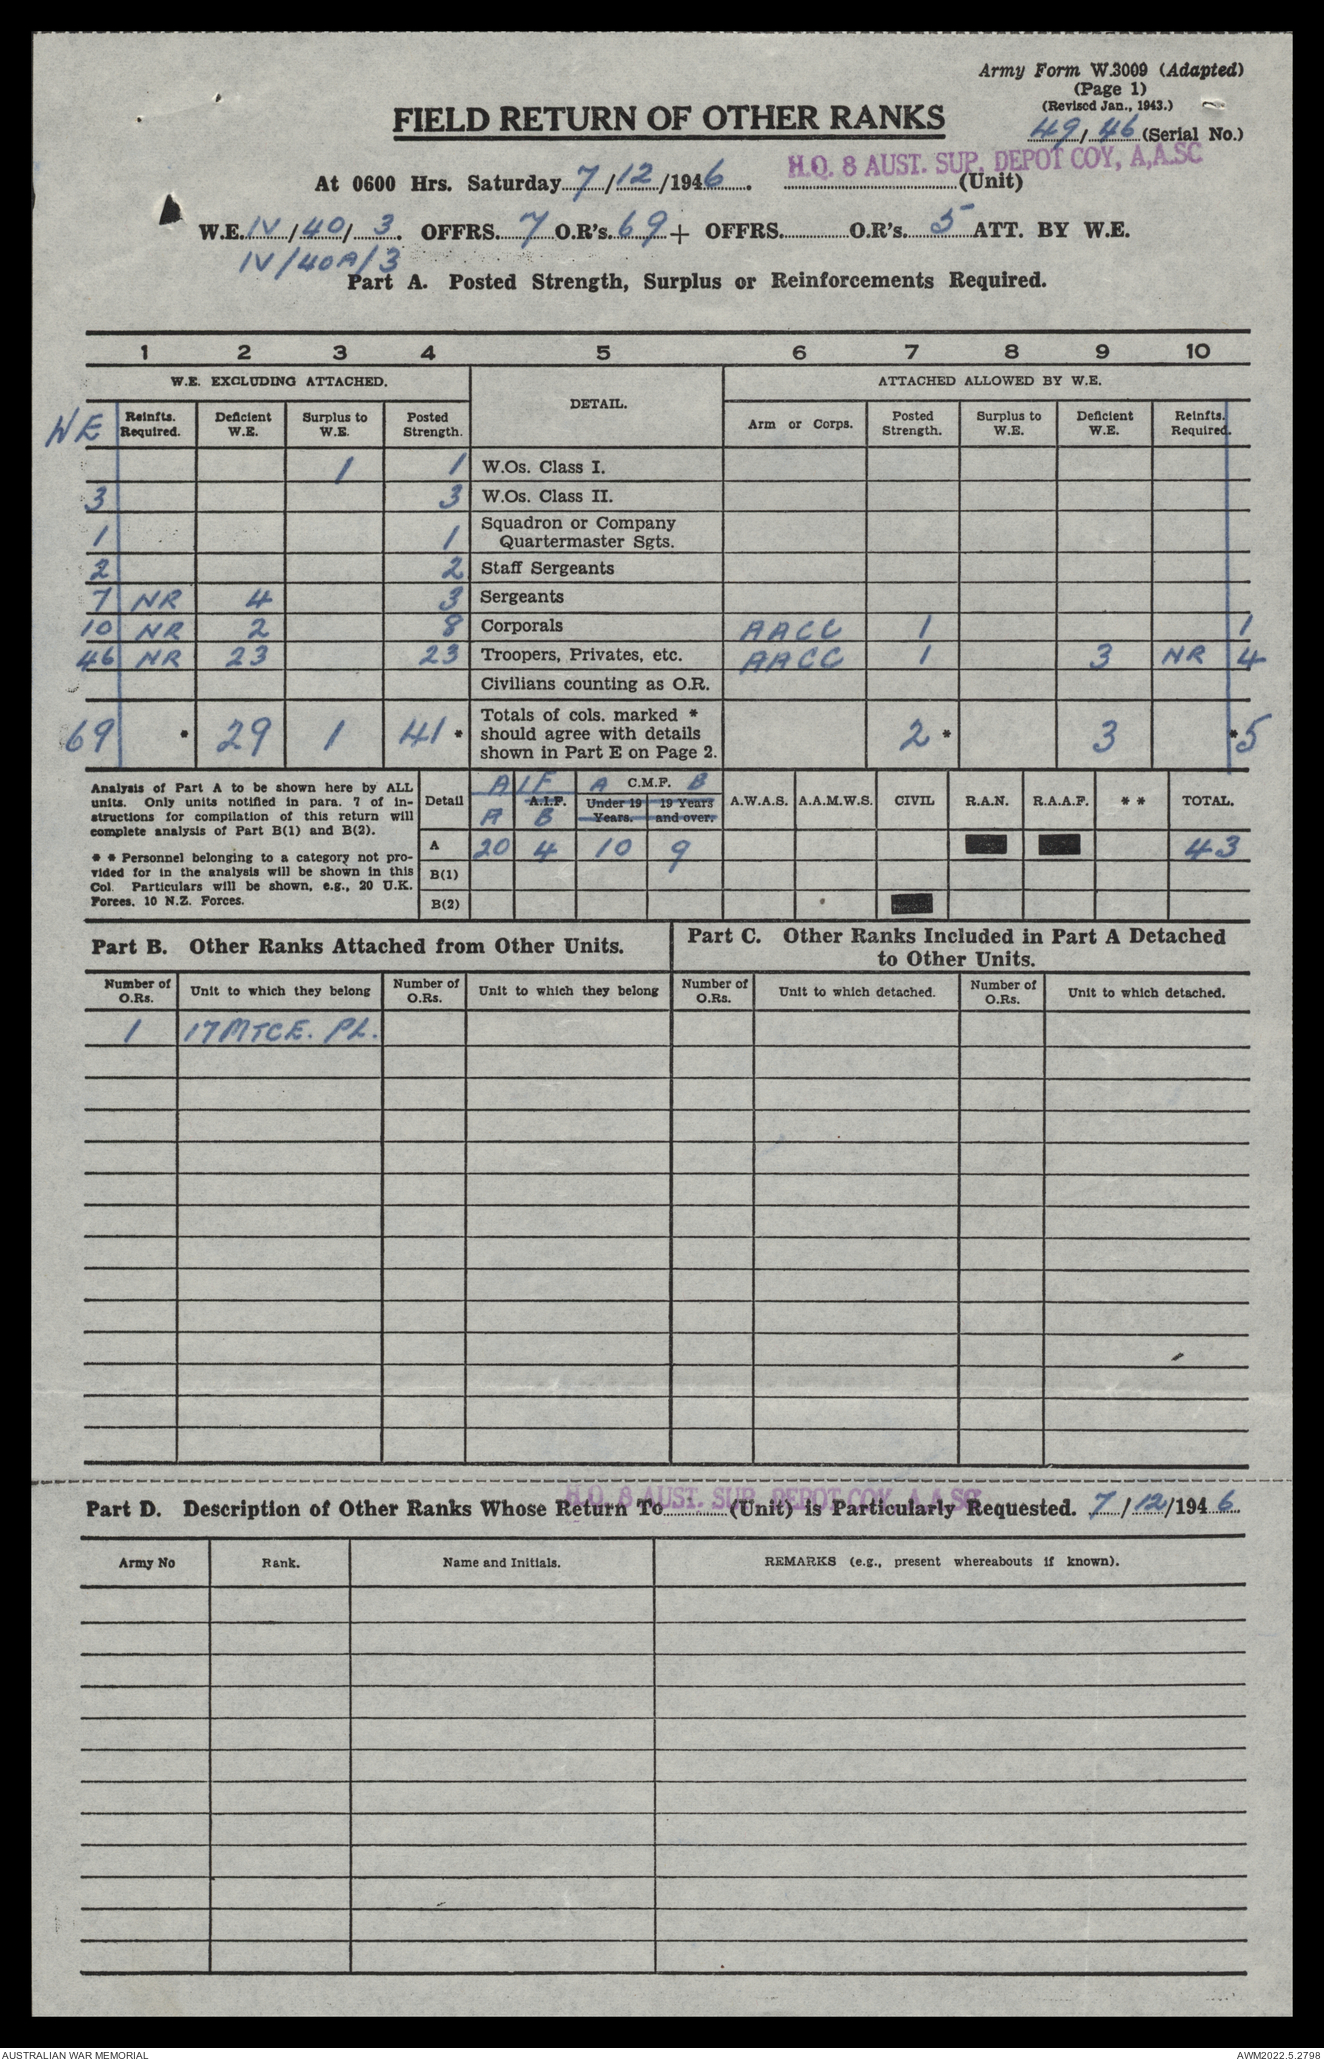 Army Form W.3009 (Adapted)
(Page 1)
(Revised Jan., 1943.)
FIELD RETURN OF OTHER RANKS
49/46 (Serial No.)
H.Q. 8 AUST. SUP. DEPOT COY, A.A.SC
At 0600 Hrs. Saturday 7/12/1946. (Unit)
W.E. IV/40/3. OFFRS. 7 O.R's. 69 + OFFRS. O.R's. 5 ATT. BY W.E.
IV/40A/3
Part A. Posted Strength, Surplus or Reinforcements Required.
1 2 3 4 5 6 7 8 9 10
W.E. EXCLUDING ATTACHED. DETAIL. ATTACHED ALLOWED BY W.E.
WE Reinfts. Required. Deficient W.E. Surplus to W.E. Posted Strength. Arm or Corps. Posted Strength. Surplus to W.E. Deficient W.E. Reinfts. Required.
1 1 W.Os. Class I.
3 3 W.Os. Class II.
1 1 Squadron or Company Quartermaster Sgts.
2 2 Staff Sergeants
7 NR 4 3 Sergeants
10 NR 2 8 Corporals AACC 1 1
46 NR 23 23 Troopers, Privates, etc. AACC 1 3 NR 4
Civilians counting as O.R.
69 * 29 1 41 * Totals of cols. marked * should agree with details shown in Part E on Page 2. 2 * 3 * 5
Analysis of Part A to be shown here by ALL
units. Only units notified in para. 7 of in-
structions for compilation of this return will
complete analysis of Part B(1) and B(2).
* * Personnel belonging to a category not pro-
vided for in the analysis will be shown in this
Col. Particulars will be shown, e.g., 20 U.K.
Forces, 10 N.Z. Forces.
AIF A C.M.F. B
Detail A A.I.F. B Under 19 Years. 19 Years and over. A.W.A.S. A.A.M.W.S. CIVIL R.A.N. R.A.A.F. * * TOTAL.
A 20 4 10 9 43
B(1)
B(2)
Part B. Other Ranks Attached from Other Units.
Part C. Other Ranks Included in Part A Detached
to Other Units.
Number of O.Rs. Unit to which they belong Number of O.Rs. Unit to which they belong Number of O.Rs. Unit to which detached. Number of O.Rs. Unit to which detached.
1 17 MTCE. PL.
H.Q. 8 AUST. SUP. DEPOT COY, A.A.SC
Part D. Description of Other Ranks Whose Return To (Unit) is Particularly Requested. 7/12/1946
Army No Rank. Name and Initials. REMARKS (e.g., present whereabouts if known).
AUSTRALIAN WAR MEMORIAL AWM2022.5.2798